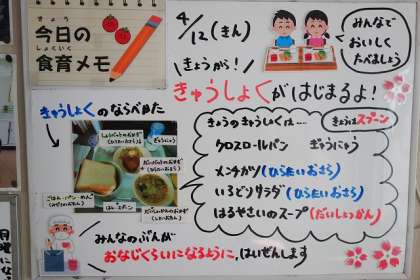 きょう しょくいく
今日の
食育メモ
4/12(きん)
きょうから!
みんなで
おいしく
たべましょう
きゅうしょくがはじまるよ!
きゅうしょくのならべかた
ぎゅうにゅう
ごはん・パン・めん
きょうのきゅうしょくは…
きょうはスプーン
クロスロールパン ぎゅうにゅう
メンチカツ(ひらたいおさら)
いろどりサラダ(ひらたいおさら)
はるやさいのスープ(だいしょっかん)
みんなのぶんが
おなじくらいになるように、はいぜんします
月曜になっ